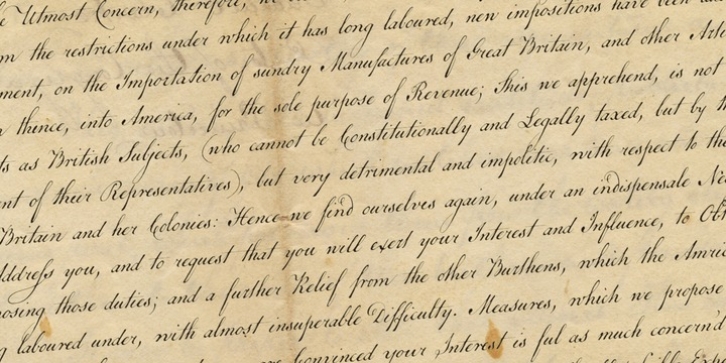 Utmost Concern, therefore,
the restrictions under which it has long laboured, new impositions have been
ment, on the Importation of sundry Manufactures of Great Britain, and other Arti
thence, into America, for the sole purpose of Revenue; This we apprehend, is not
ts as British Subjects, (who cannot be Constitutionally and Legally taxed, but by
ent of their Representatives), but very detrimental and impolitic, with respect to the
Britain and her Colonies: Hence we find ourselves again, under an indispensale Ne
ddress you, and to request that you will exert your Interest and Influence, to Obt
osing those duties; and a further Relief from the other Burthens, which the Amric
g laboured under, with almost insuperable Difficulty. Measures, which we propose
Convinced your Interest is ful as much concernd